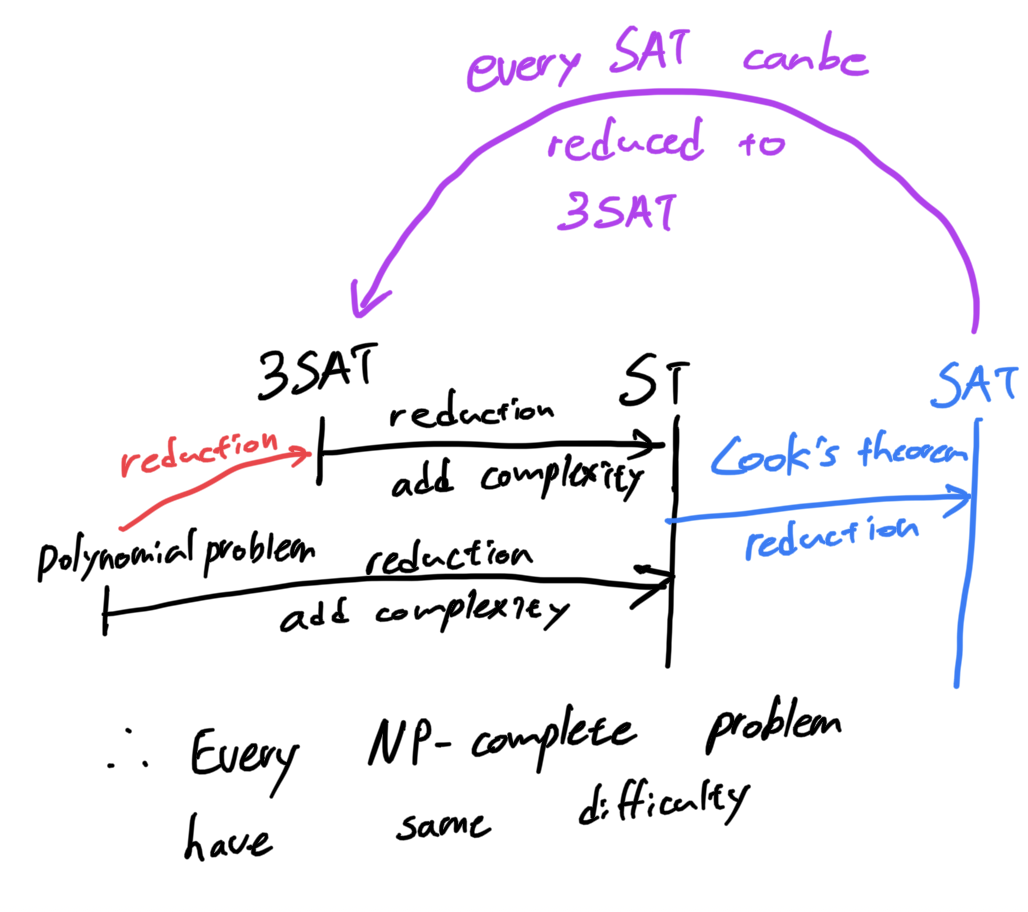 every SAT canbe
reduced to
3SAT
3SAT
ST
SAT
reduction
reduction
add complexity
Cook's theorem
reduction
Polynomial problem
reduction
add complexity
∴ Every NP-complete problem
have same difficulty